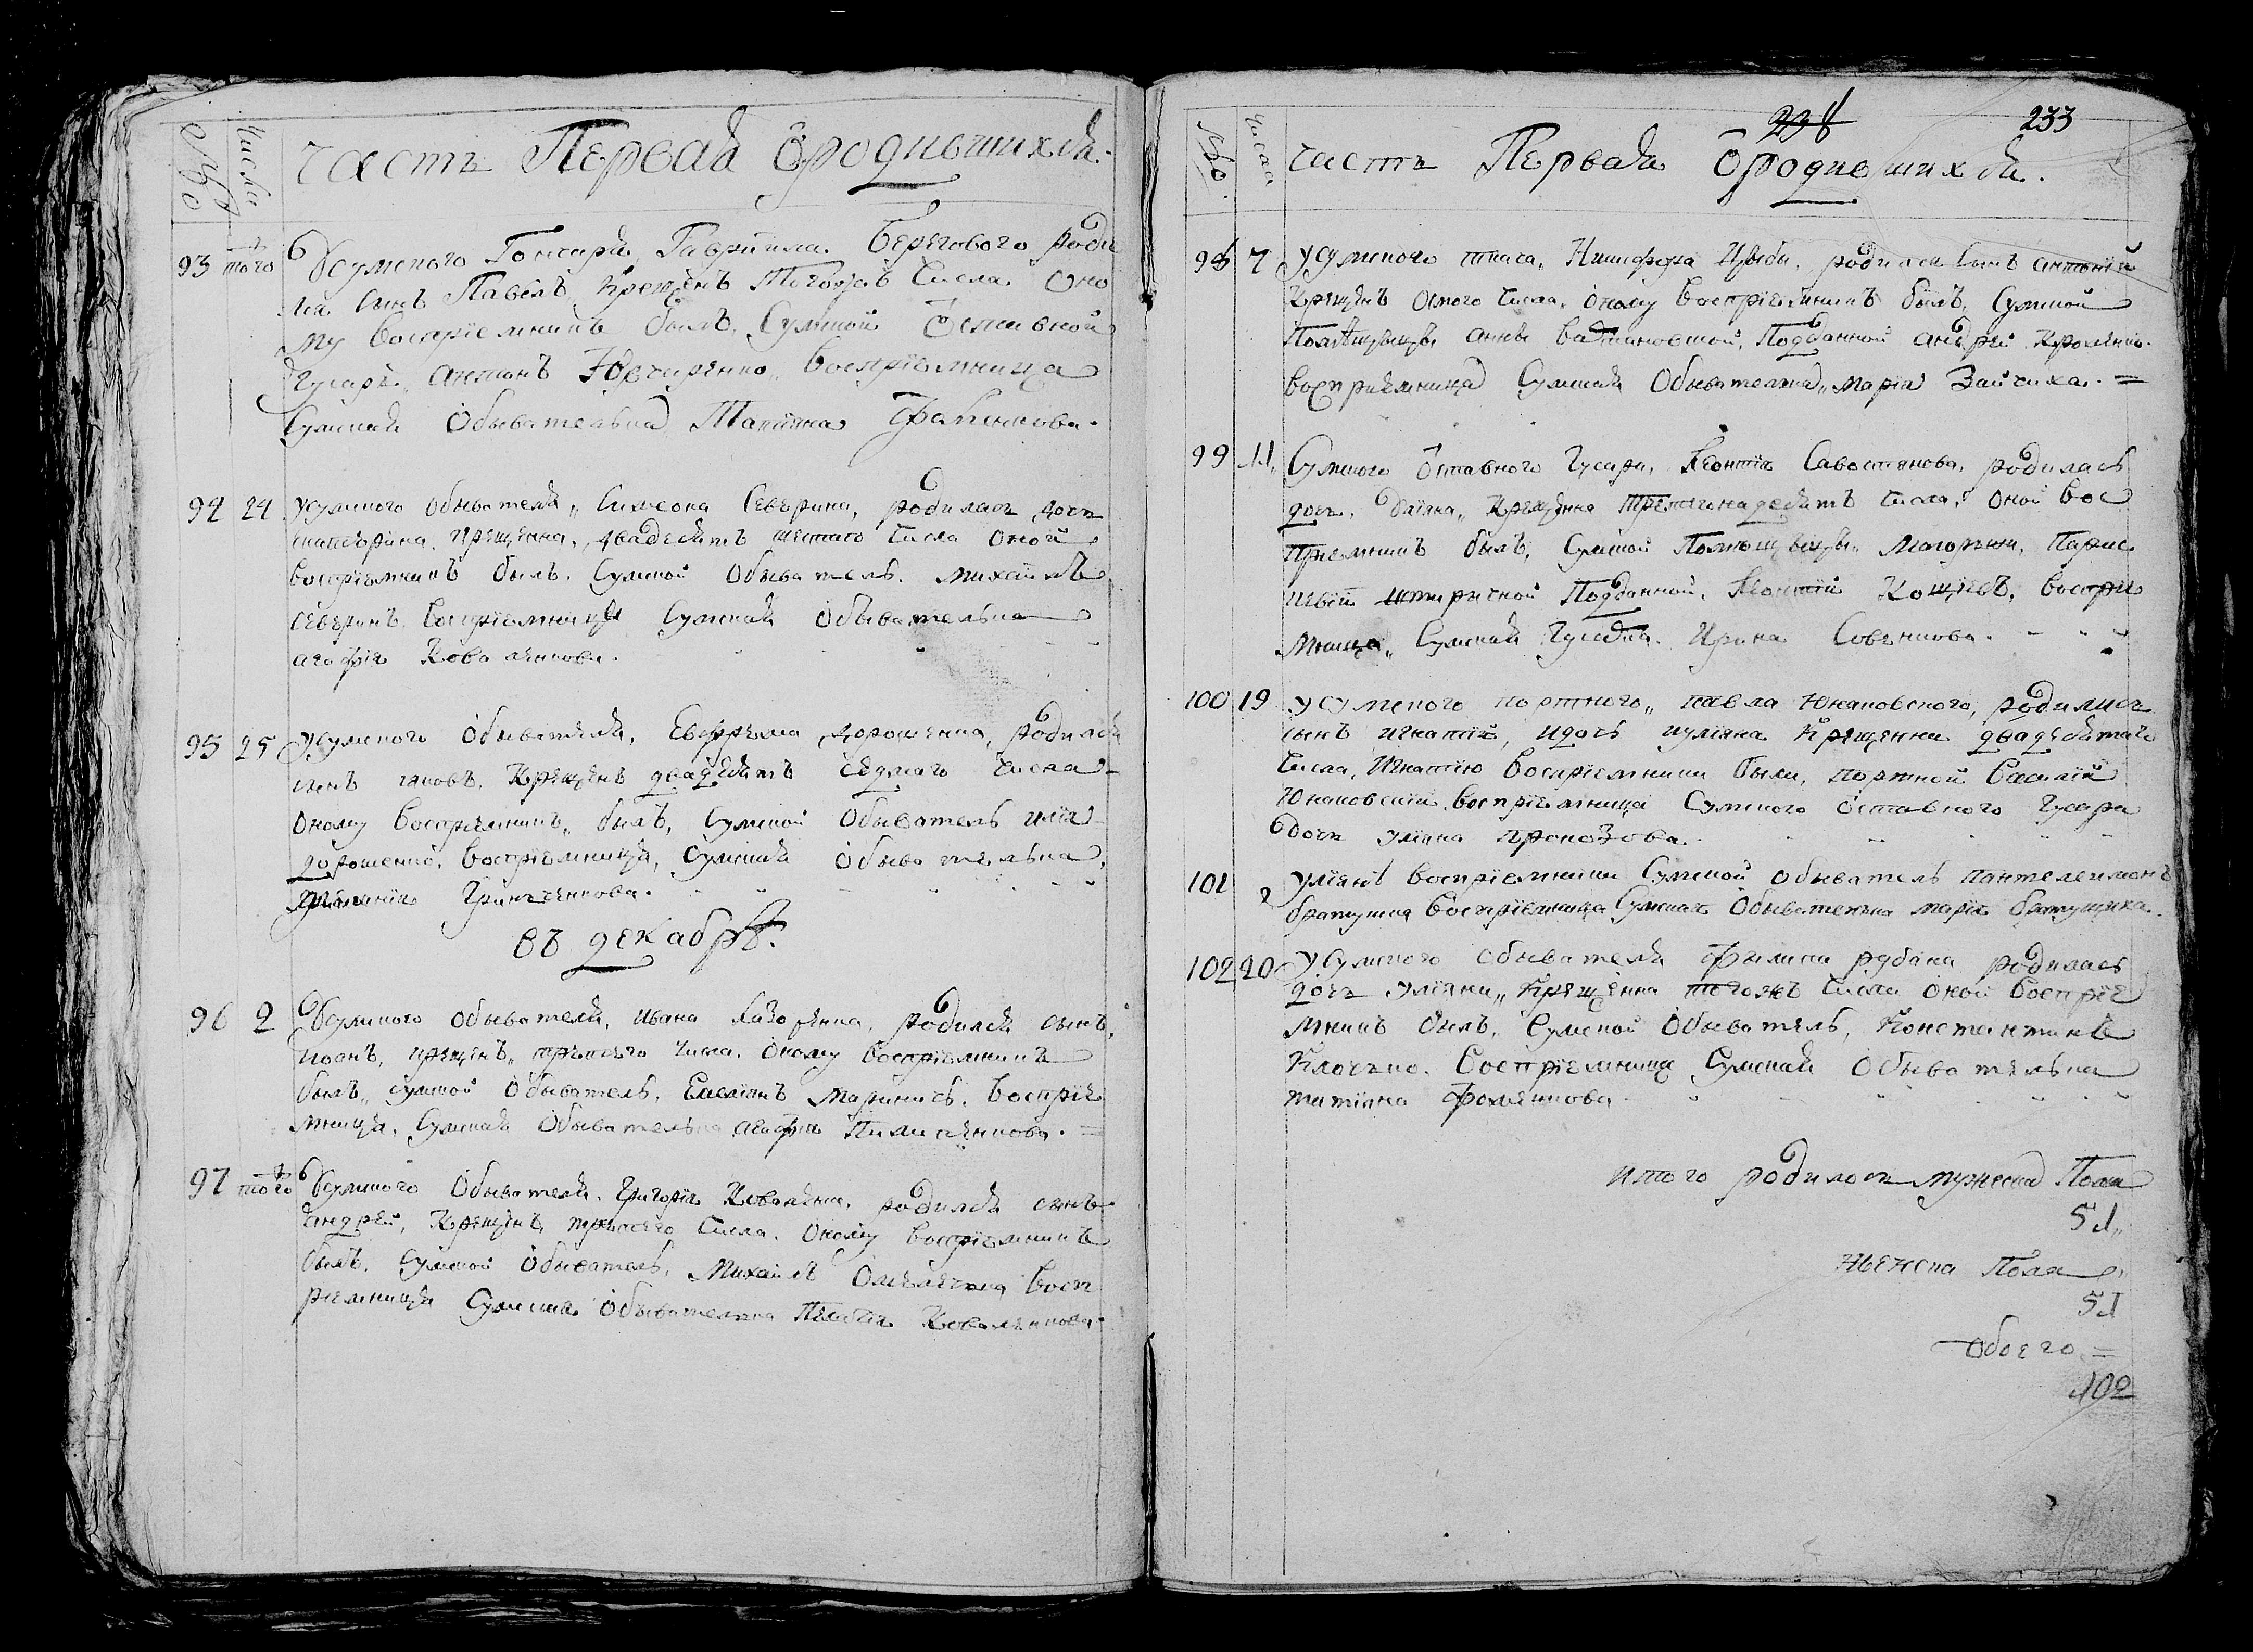 №
Числа
часть Первая Ѡродившихся.
93 того У Сумского Гончаря, Гаврїила Берегового роди
лся Сынъ Павелъ, Крещенъ Тогожъ Числа Оно
му воспрїемникъ былъ, Сумской Ѿставной
Гусаръ, антонъ Юрченко, воспрїемница
Сумская Обывателька, Татїана
94 24 у сумского обывателя, Симеона Северина, родилась дочь
екатерина, крещенна, двадесять шестаго числа оной
воспрїемникъ былъ, Сумской Обыватель, михаилъ
северинъ, воспрїемница Сумская обывателька
агафїя Коваленкова.
95 25 У сумского Обывателя, Евфрема дорошенка, родился
сынъ іяковъ, Крещенъ двадесять седмаго числа
оному воспрїемникъ, былъ, Сумской Обыватель илїя
дорошенко, воспрїемница, сумская обывателька,
Гринченкова.
въ декабрѣ.
96 2 У Сумского обывателя, ивана Лазоренка, родился сынъ,
иоанъ, крещенъ, третего числа, оному воспрїемникъ
былъ, сумской Обыватель, Емелїянъ воспрїе
мница, Сумская Обывателька агафїя
97 того У Сумского Обывателя, Григорїя Коваленка, родился сынъ
андрей, Крещенъ, третего Числа, Оному воспрїемникъ
былъ, Сумской Обыватель, Михаилъ Омелченко восп
рїемница Сумская Обывателька Коваленкова.
233
№
Числа
часть Первая Ѡродившихся.
98 7 У Сумского ткача, Никифора Цыбы, родился Сынъ антонїй
Крещенъ Осмого Числа, Оному воспрїемникъ былъ, Сумской
Помѣщицы анны Подданной андрей
воспрїемница Сумская Обывателька, марїя Зайчиха. =
99 11 Сумского Ѿставного Гусара, Леонтїя Савостянова, родилась
дочь, Крещенна третегонадесять Числа, Оной вос
прїемникъ былъ, Сумской Помѣщицы,
Подданной, Леонтїй воспрїе
мница, Сумская Гусарка Ирина
100 19 у Сумского портного, павла Юкановского, родились
сынъ игнатїй, и дочь иулїяна Крещенни двадесятаго
Числа, Игнатїю воспрїемники были, портной василїй
Юкановскїй, воспрїемница Сумского ѿставного Гусара
дочь улїана
101 2 улїянѣ воспрїемники Сумской обыватель пантелеимонъ
братушка воспрїемница Сумская Обывателька марїя братушиха.
102 20 У Сумского обывателя филипа рубана родилась
дочь улїяна, Крещенна тогожъ Числа Оной воспрїе
мникъ былъ, Сумской Обыватель, Константинъ
Клочко. воспрїемница Сумская Обывателька
татїяна фоменкова
итого родилось мужеска Пола
51
женска Пола
51
Обоего =
102